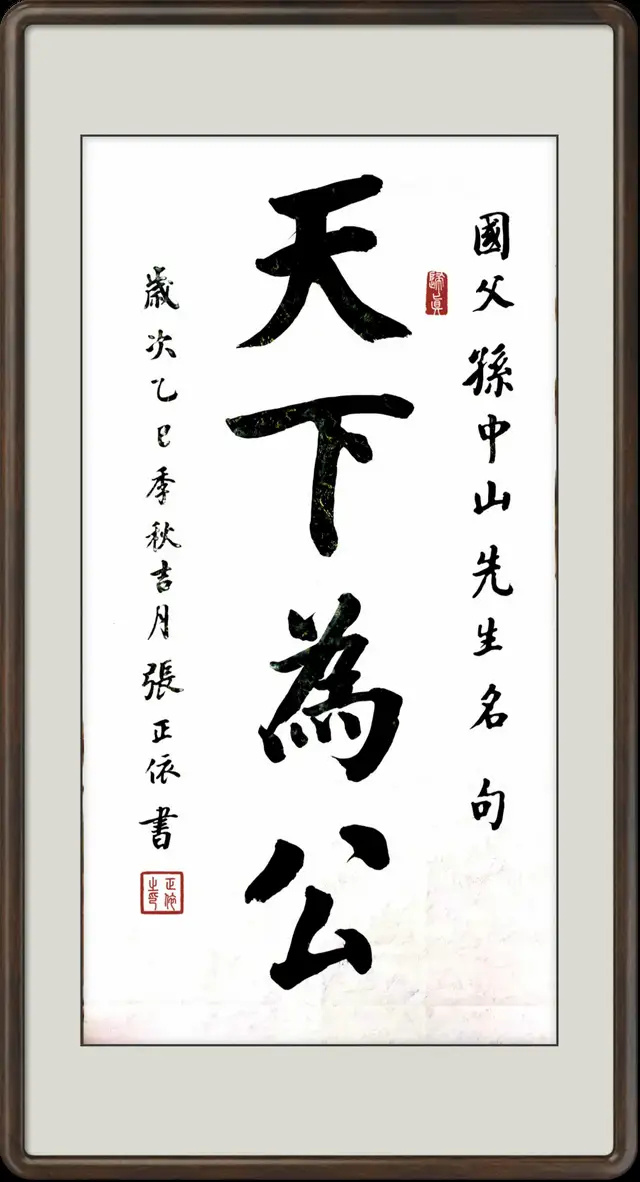 國父孫中山先生名句
歸真
天下為公
歲次乙巳季秋吉月張正依書
正依之印